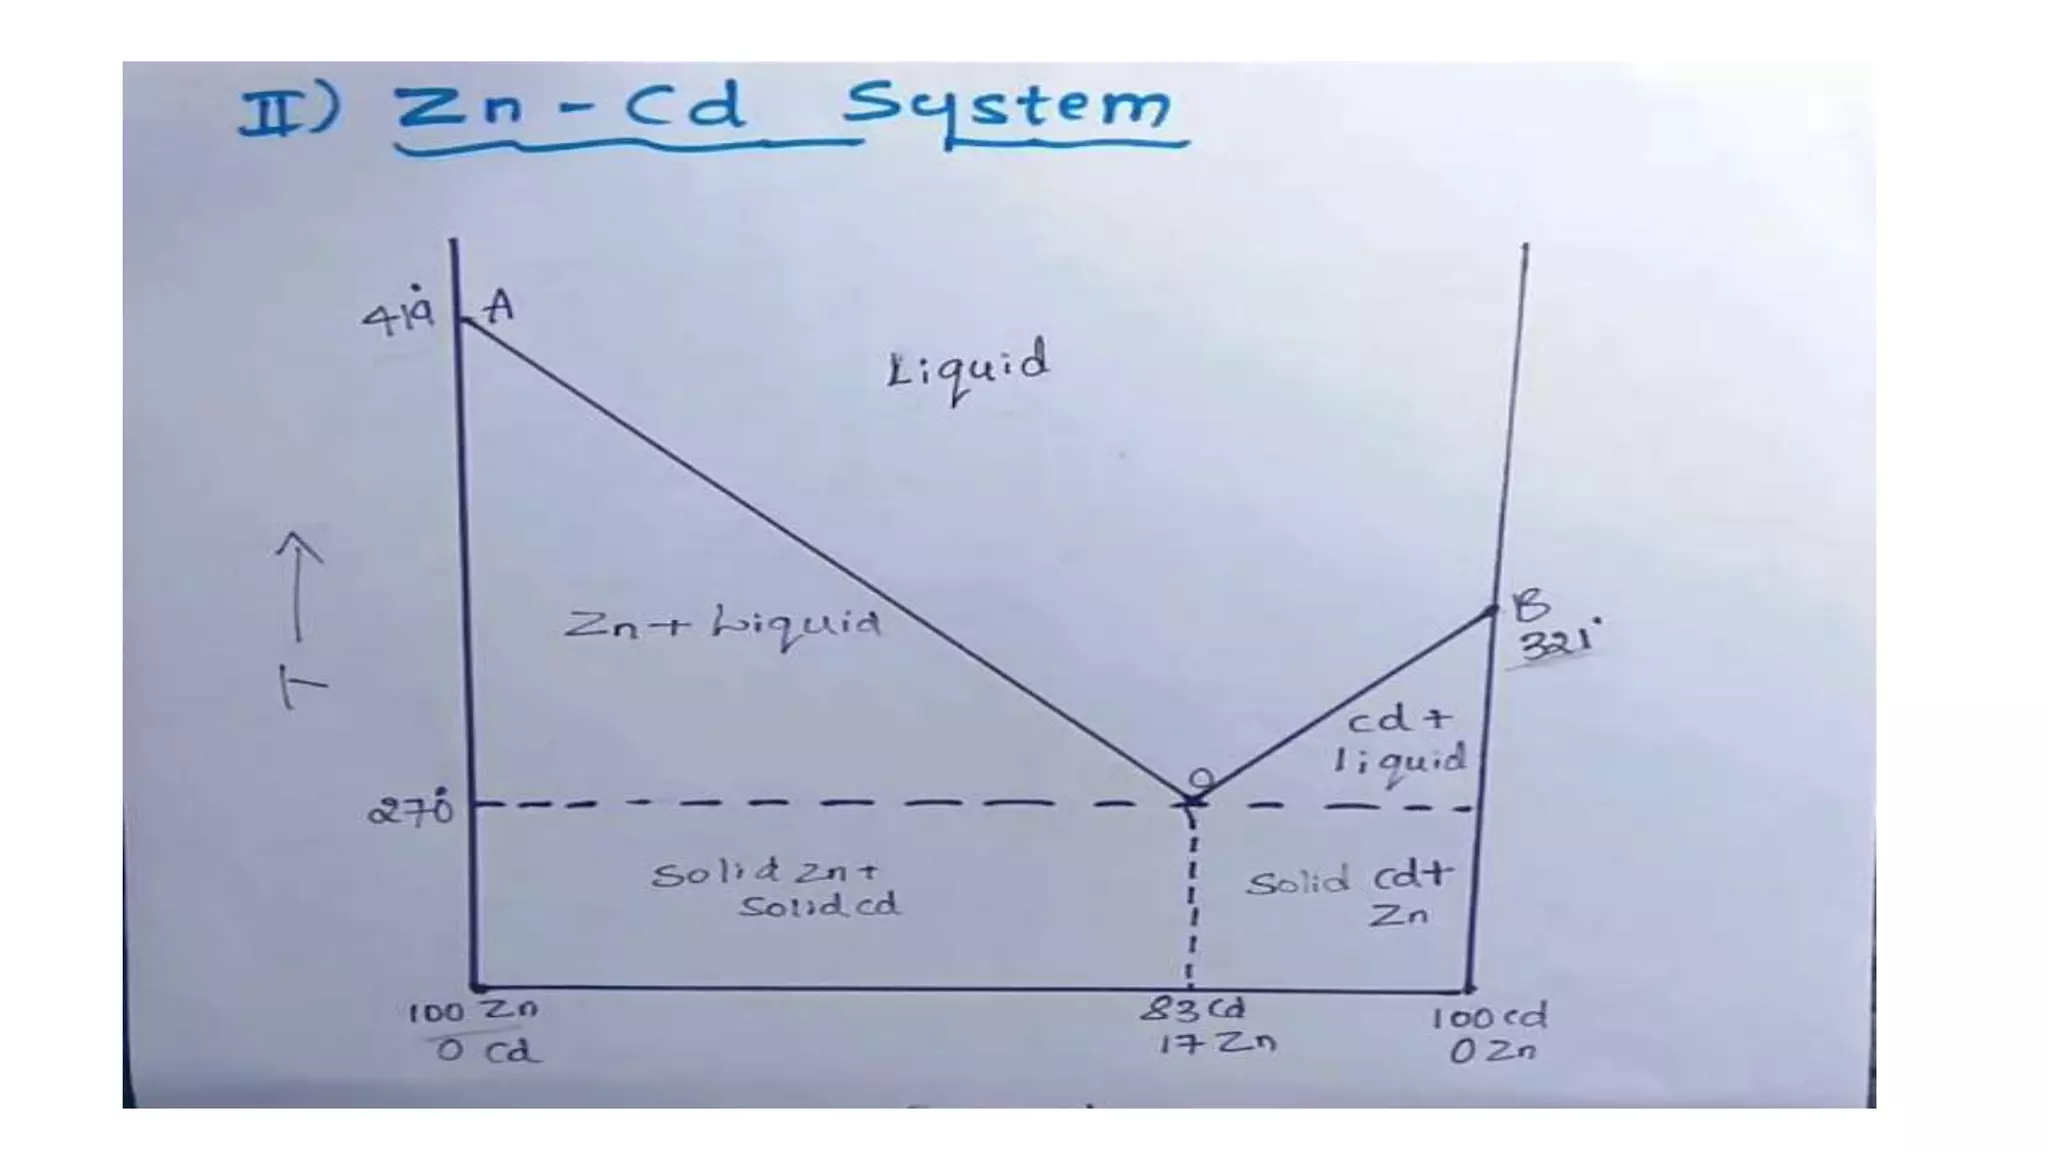 II) Zn - Cd System
419° A
Liquid
B
321°
T →
Zn + Liquid
cd +
liquid
O
270°
Solid Zn +
Solid cd
Solid Cd +
Zn
100 Zn
0 Cd
83 Cd
17 Zn
100 cd
0 Zn